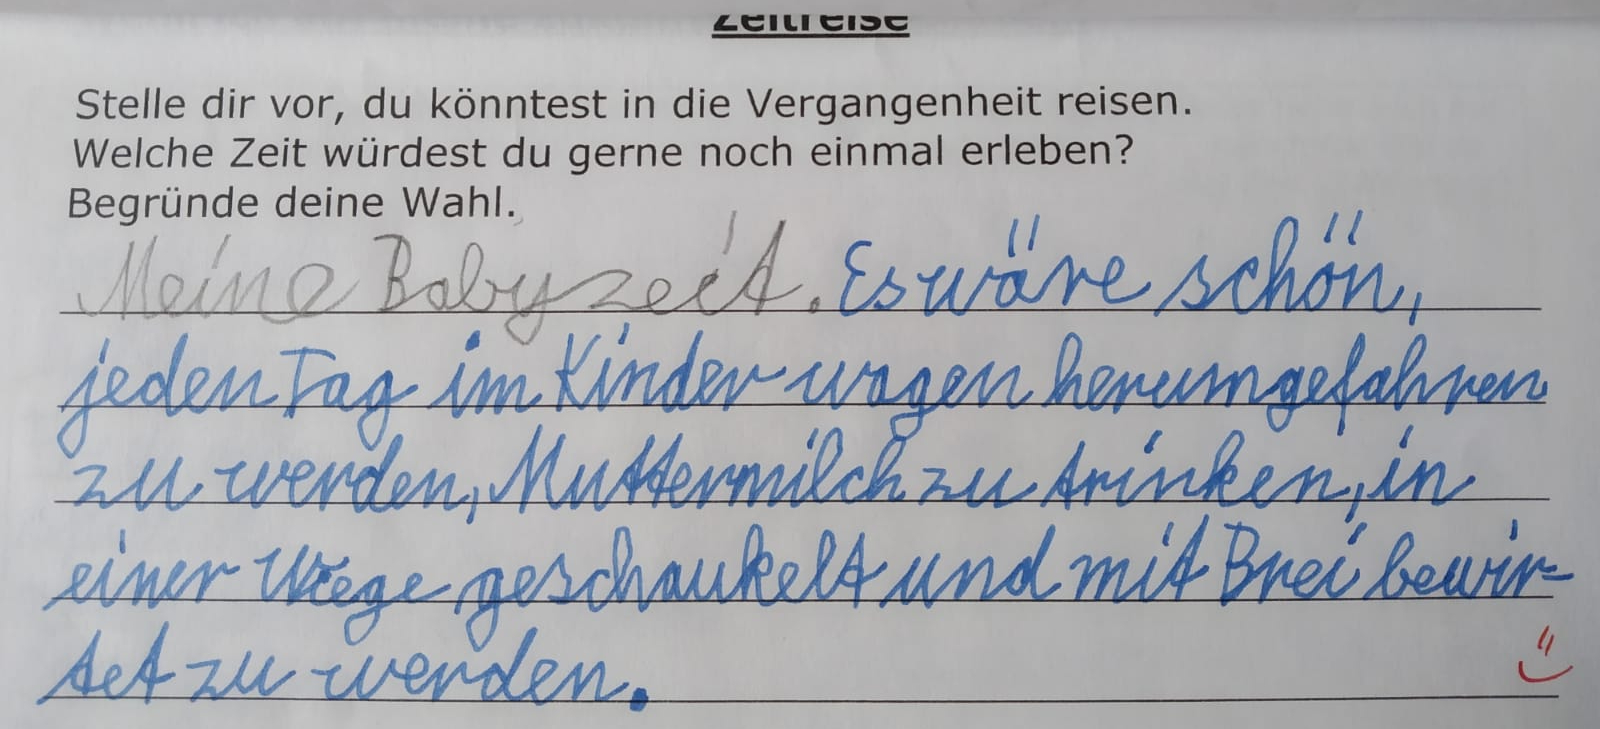 Zeitreise
Stelle dir vor, du könntest in die Vergangenheit reisen.
Welche Zeit würdest du gerne noch einmal erleben?
Begründe deine Wahl.
Meine Babyzeit. Es wäre schön,
jeden Tag im Kinderwagen herumgefahren
zu werden, Muttermilch zu trinken, in
einer Wiege geschaukelt und mit Brei bewir-
tet zu werden.